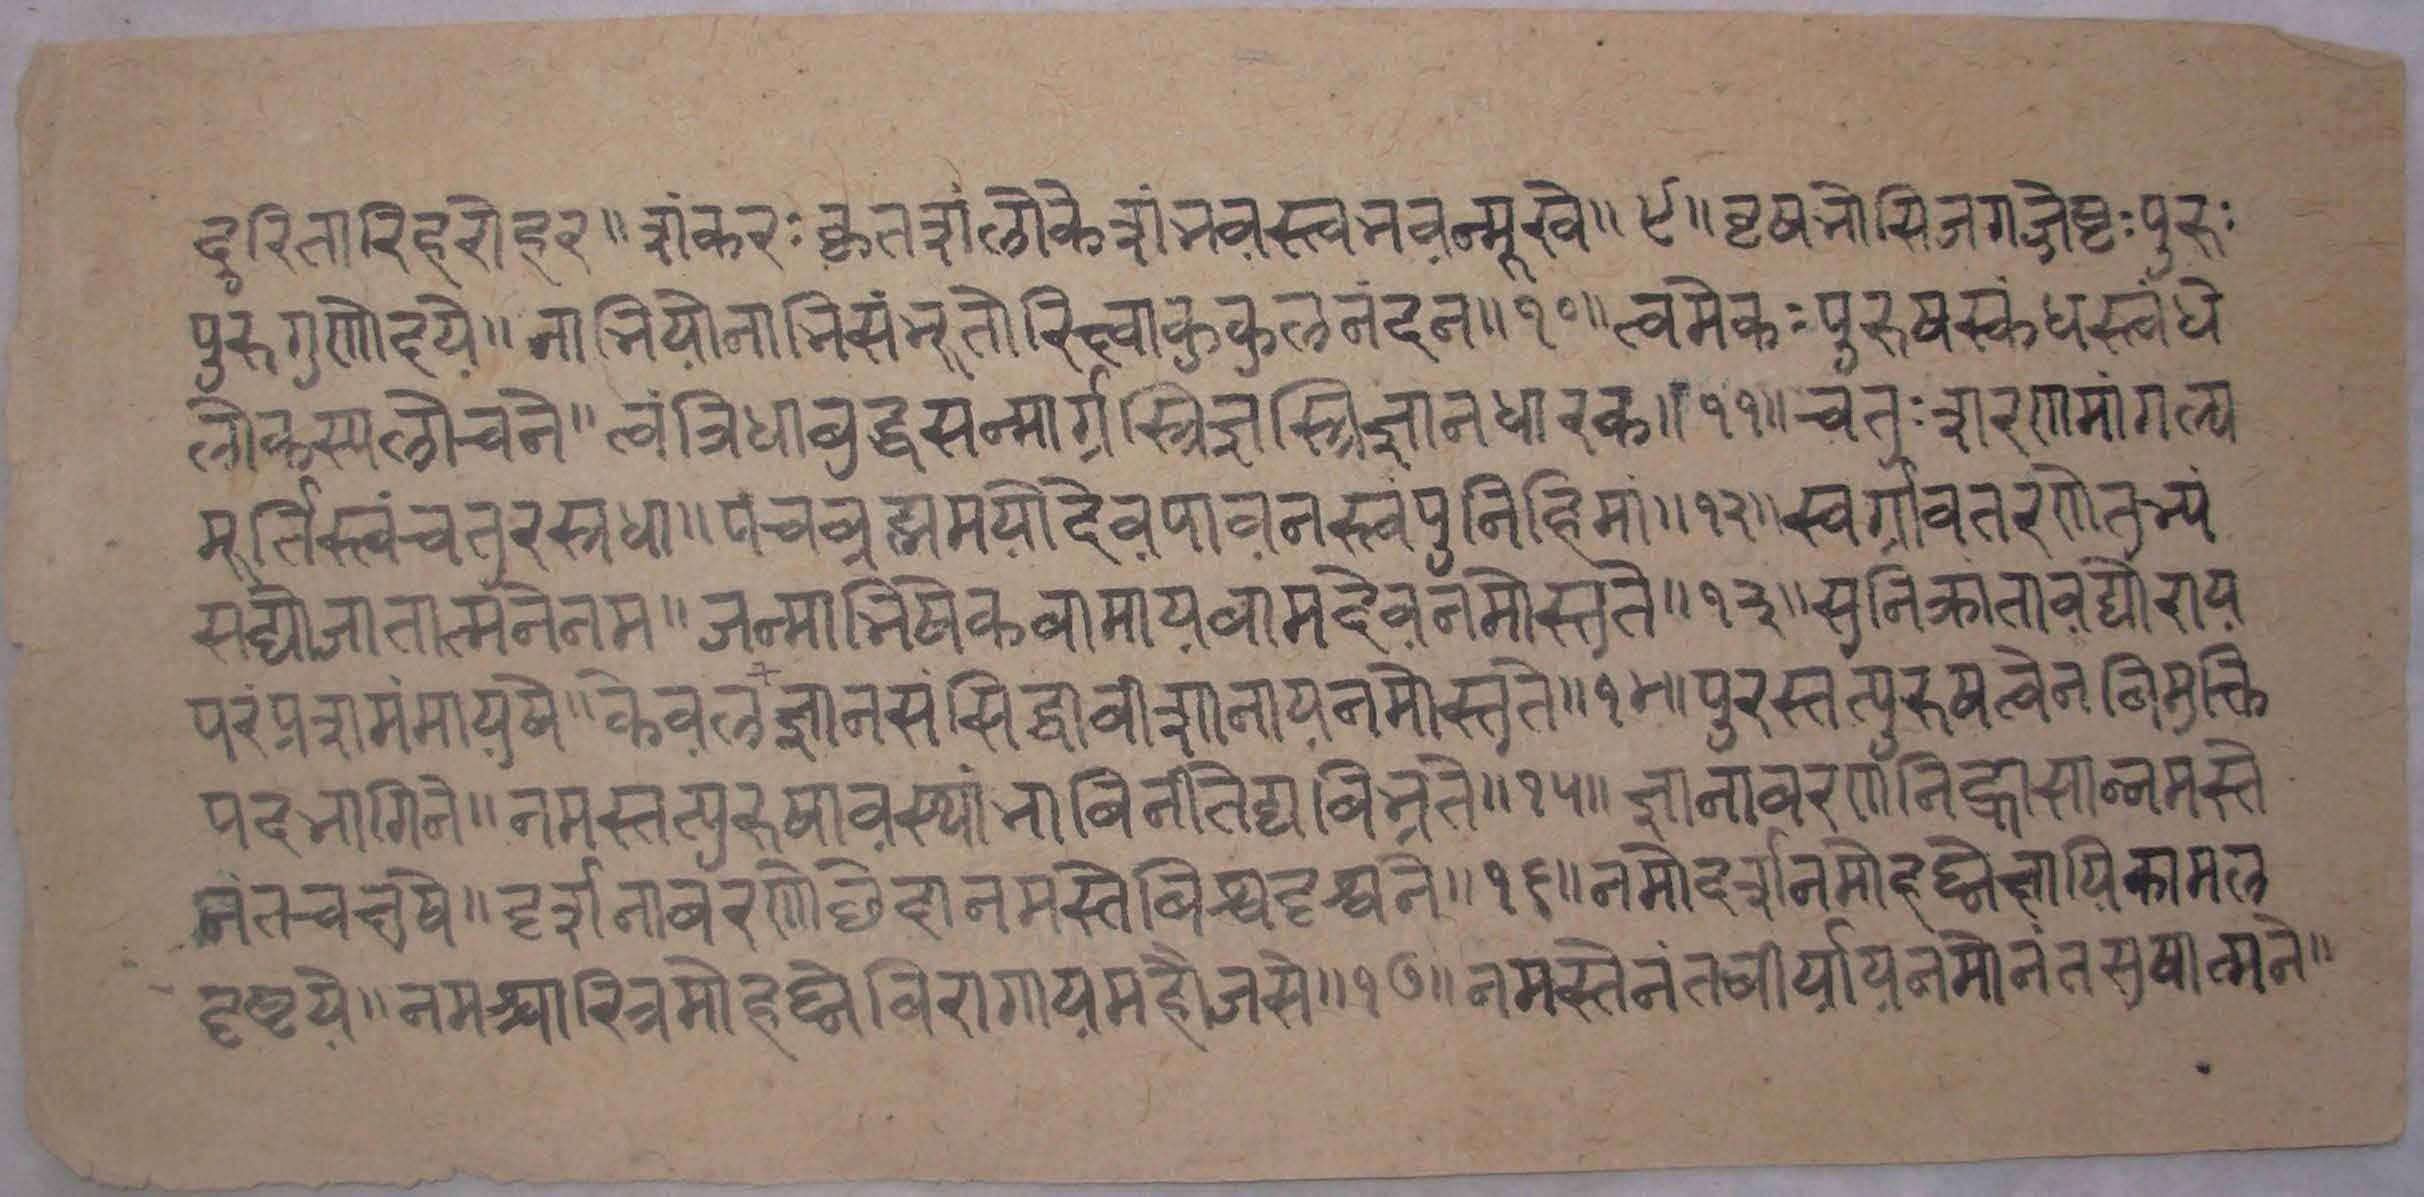 दुरितारिहरोहर॥शंकरःकृतशंलोकेशंभवस्त्वभवन्मूखे॥९॥वृषभोसिजगज्जेष्टःपुरुः
पुरुगुणोदये॥नाभियोनाभिसंभूतोरिक्ष्वाकुकुलनंदन॥१०॥त्वमेकःपुरुषस्कंधस्त्वंधे
लोकस्यलोचने॥त्वंत्रिधाबुद्धसन्मार्गस्त्रिज्ञस्त्रिज्ञानधारक॥११॥चतुःशरणमांगल्य
मूर्तिस्त्वंचतुरस्त्रधा॥पंचब्रह्ममयोदेवपावनस्त्वंपुनिहिमां॥१२॥स्वर्गावतरणेतुभ्यं
सद्योजातात्मनेनम॥जन्माभिषेकवामायवामदेवनमोस्तुते॥१३॥सुनिक्रातावघोराय
परंप्रशमंमायुषे॥केवलज्ञानसंसिद्धावीशानायनमोस्तुते॥१४॥पुरस्तत्पुरुषत्वेनविमुक्ति
पदभागिने॥नमस्तत्पुरुषावस्थांभाविनींतेद्यबिभ्रते॥१५॥ज्ञानावरणनिर्ह्रासान्नमस्ते
नंतचक्षुषे॥दर्शनावरणोछेदानमस्तेविश्वदृश्वने॥१६॥नमोदर्शनमोहघ्नेक्षायिकामल
दृष्टये॥नमश्चारित्रमोहघ्नेविरागायमहौजसे॥१७॥नमस्तेनंतवीर्यायनमोनंतसुषात्मने॥